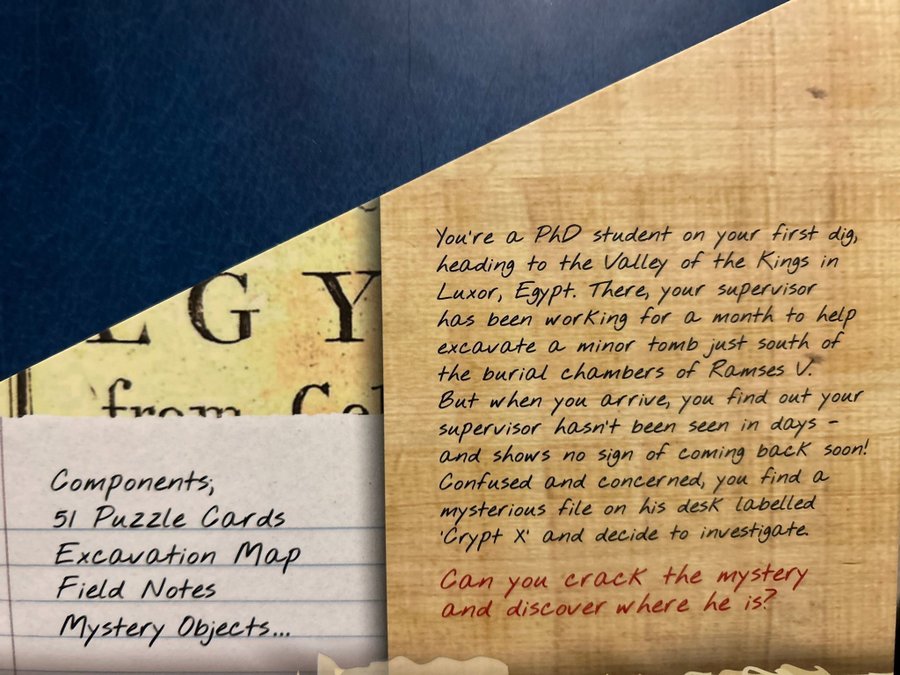 EGY
from
Components;
51 Puzzle Cards
Excavation Map
Field Notes
Mystery Objects...
You're a PhD student on your first dig,
heading to the Valley of the Kings in
Luxor, Egypt. There, your supervisor
has been working for a month to help
excavate a minor tomb just south of
the burial chambers of Ramses V.
But when you arrive, you find out your
supervisor hasn't been seen in days -
and shows no sign of coming back soon!
Confused and concerned, you find a
mysterious file on his desk labelled
'Crypt X' and decide to investigate.
Can you crack the mystery
and discover where he is?